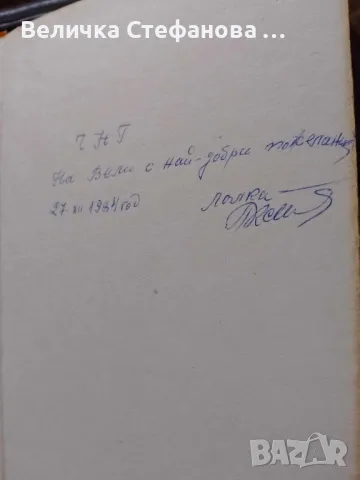 Величка Стефанова
ЧНГ
На Вели с най-добри пожелания
27 XII 1984 год Лалка
BAZAR